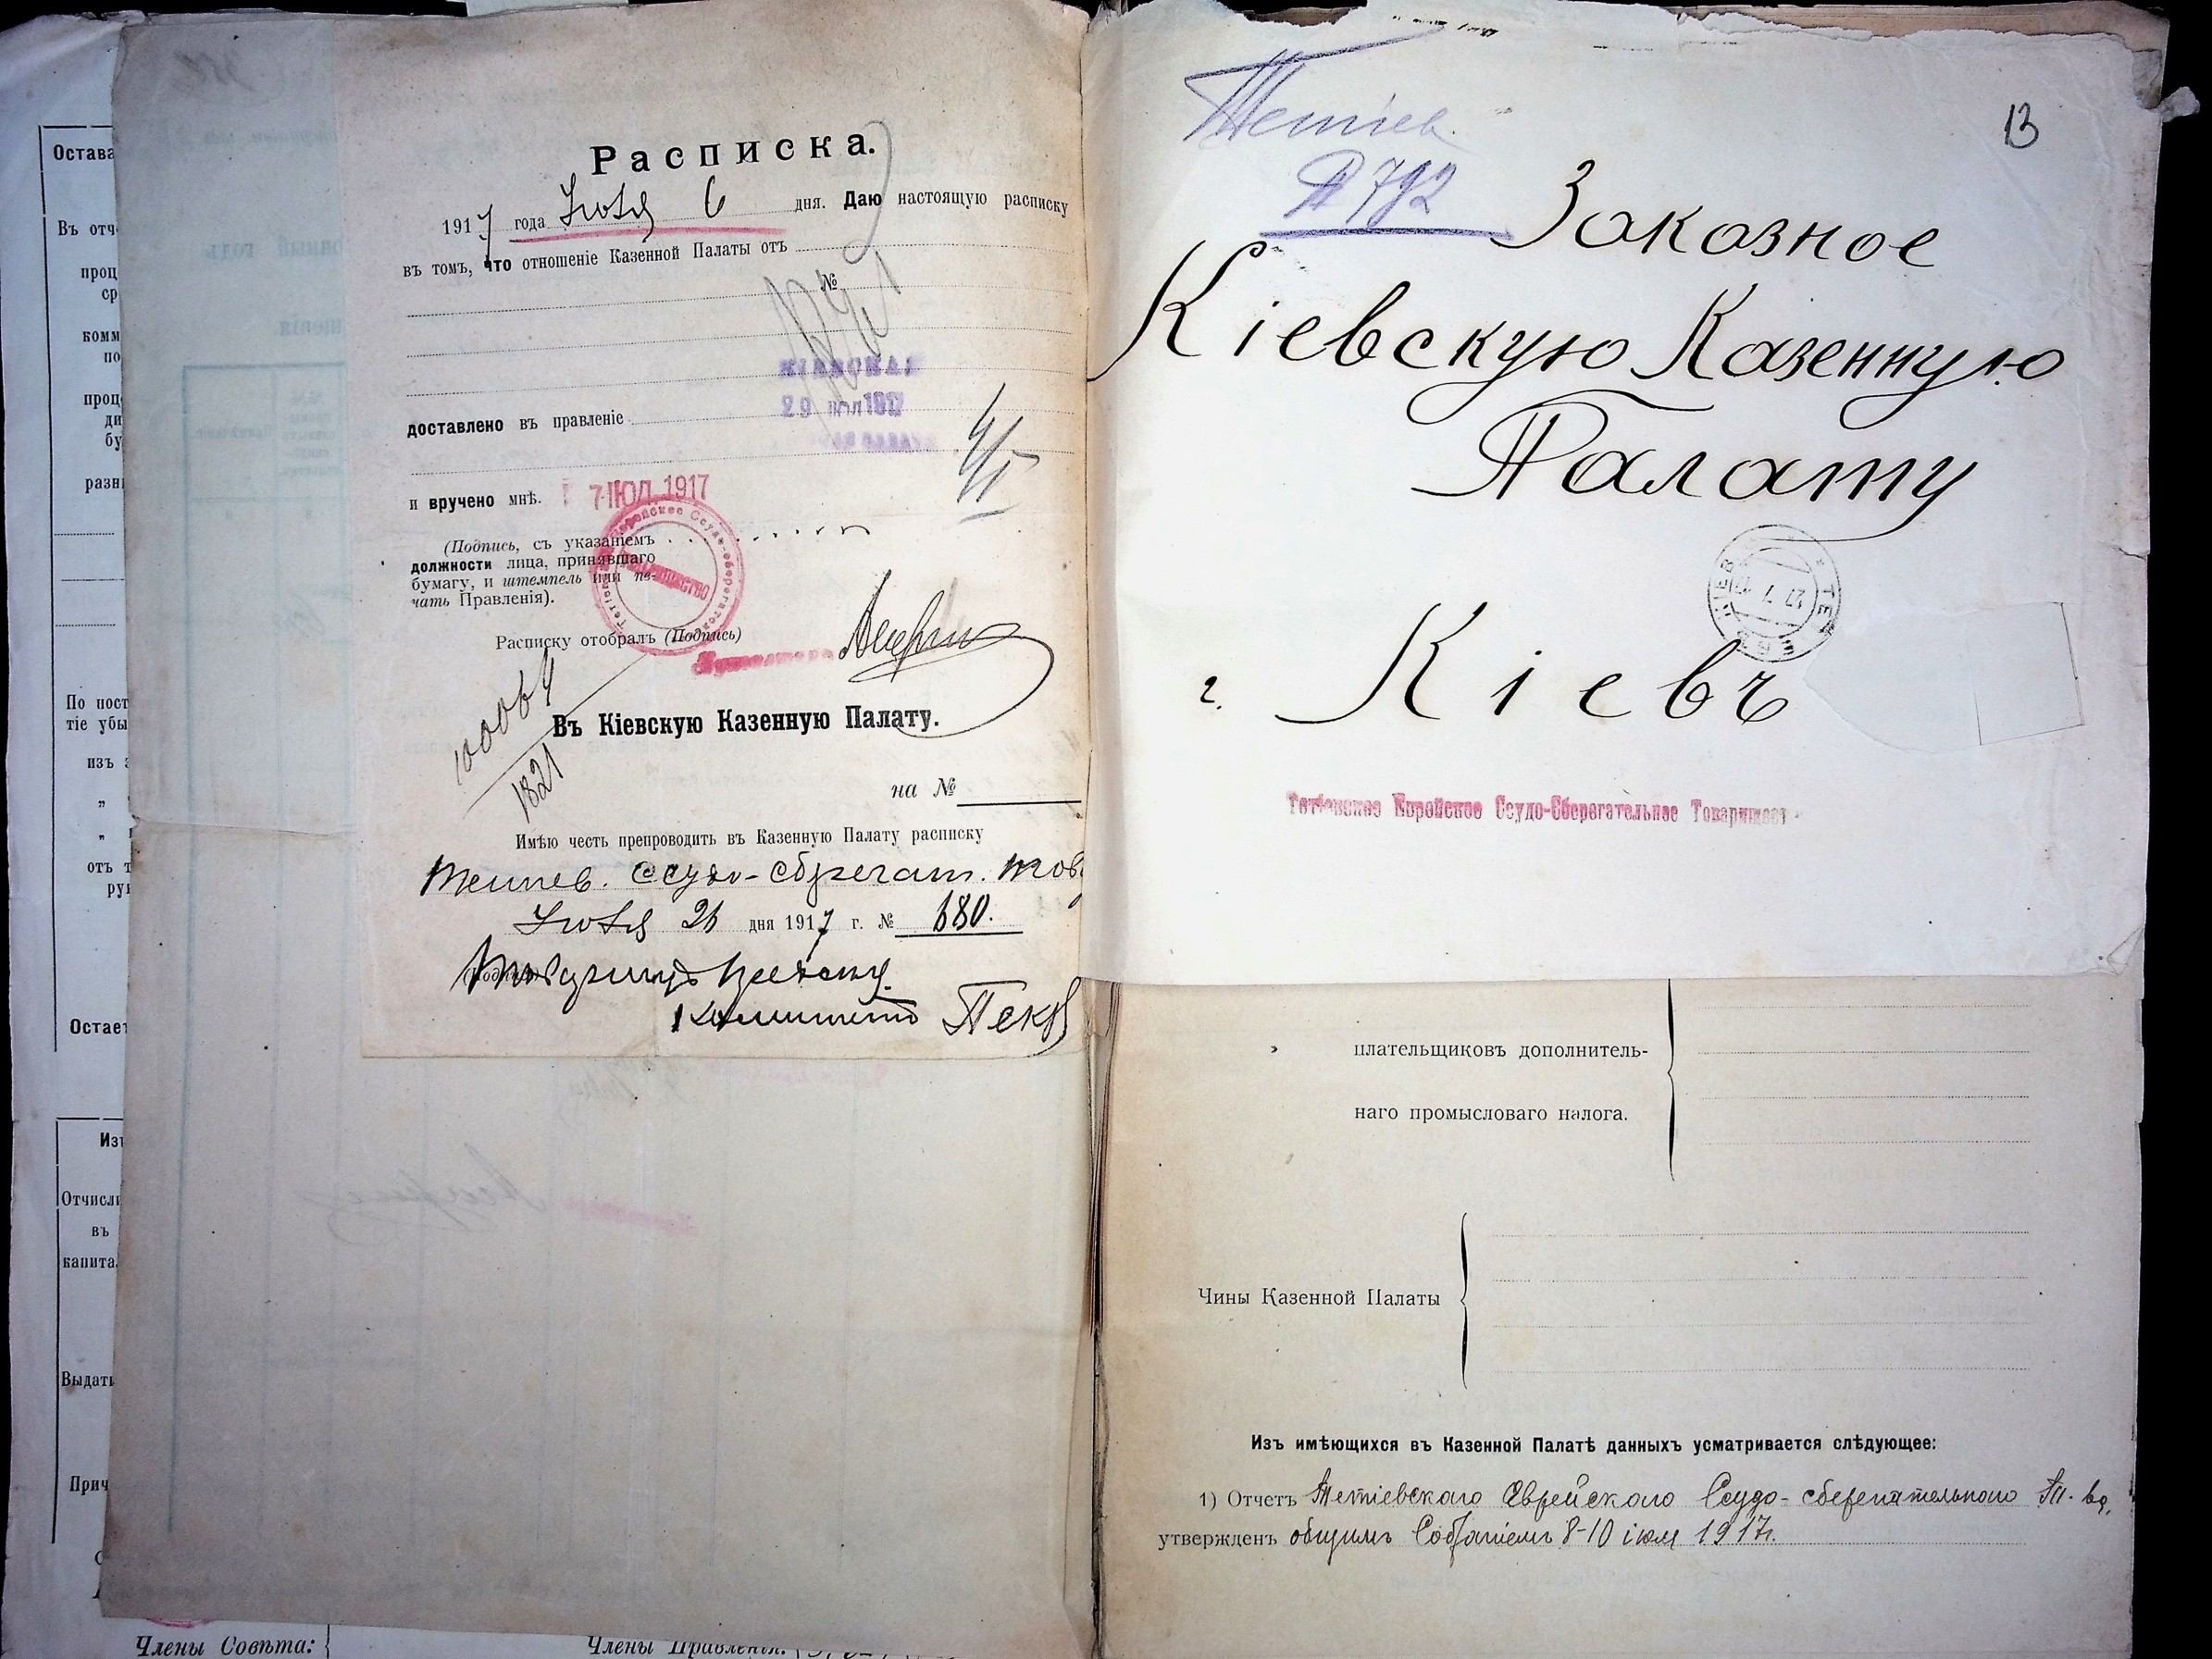 Остава
Въ отч
проц
ср
комм
по
проц
ди
бу
разн
По пост
тіе убы
изъ
„
„
отъ т
ру
Остает
Из
Отчисли
въ
капита
Выдать
Прич
Члены Совѣта:
Члены Правленія:
Расписка.
1917 года Іюля 6 дня. Даю настоящую расписку
въ томъ, что отношеніе Казенной Палаты отъ
№
КІЕВСКАЯ
29 ІЮЛ 1917
доставлено въ правленіе
и вручено мнѣ.
7 ІЮЛ 1917
(Подпись, съ указаніемъ
должности лица, принявшаго
бумагу, и штемпель или пе-
чать Правленія).
Расписку отобралъ (Подпись)
1821
Въ Кіевскую Казенную Палату.
на №
Имѣю честь препроводить въ Казенную Палату расписку
Тетіев. Ссудо-сберегат. тов
Іюля 26 дня 1917 г. № 680.
13
Тетіев.
792
Заказное
Кіевскую Казенную
Палату
г. Кіевъ
Тетіевское Еврейское Ссудо-Сберегательное Товарищест
плательщиковъ дополнитель-
наго промысловаго налога.
Чины Казенной Палаты
Изъ имѣющихся въ Казенной Палатѣ данныхъ усматривается слѣдующее:
1) Отчетъ Тетіевскаго Еврейскаго Ссудо-сберегательнаго Т-ва,
утвержденъ общимъ Собраніемъ 8-10 іюля 1917г.